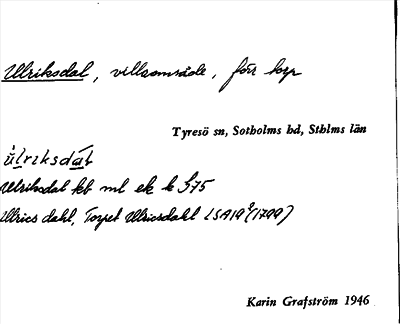 Ulriksdal, villaområde, förr torp
Tyresö sn, Sotholms hd, Sthlms län
ùlrıksdɑ̄t
Ulriksdal kb ml ek k S75
Ullrics dahl, Torpet Ullricsdahl LSA19 (1799)
Karin Grafström 1946